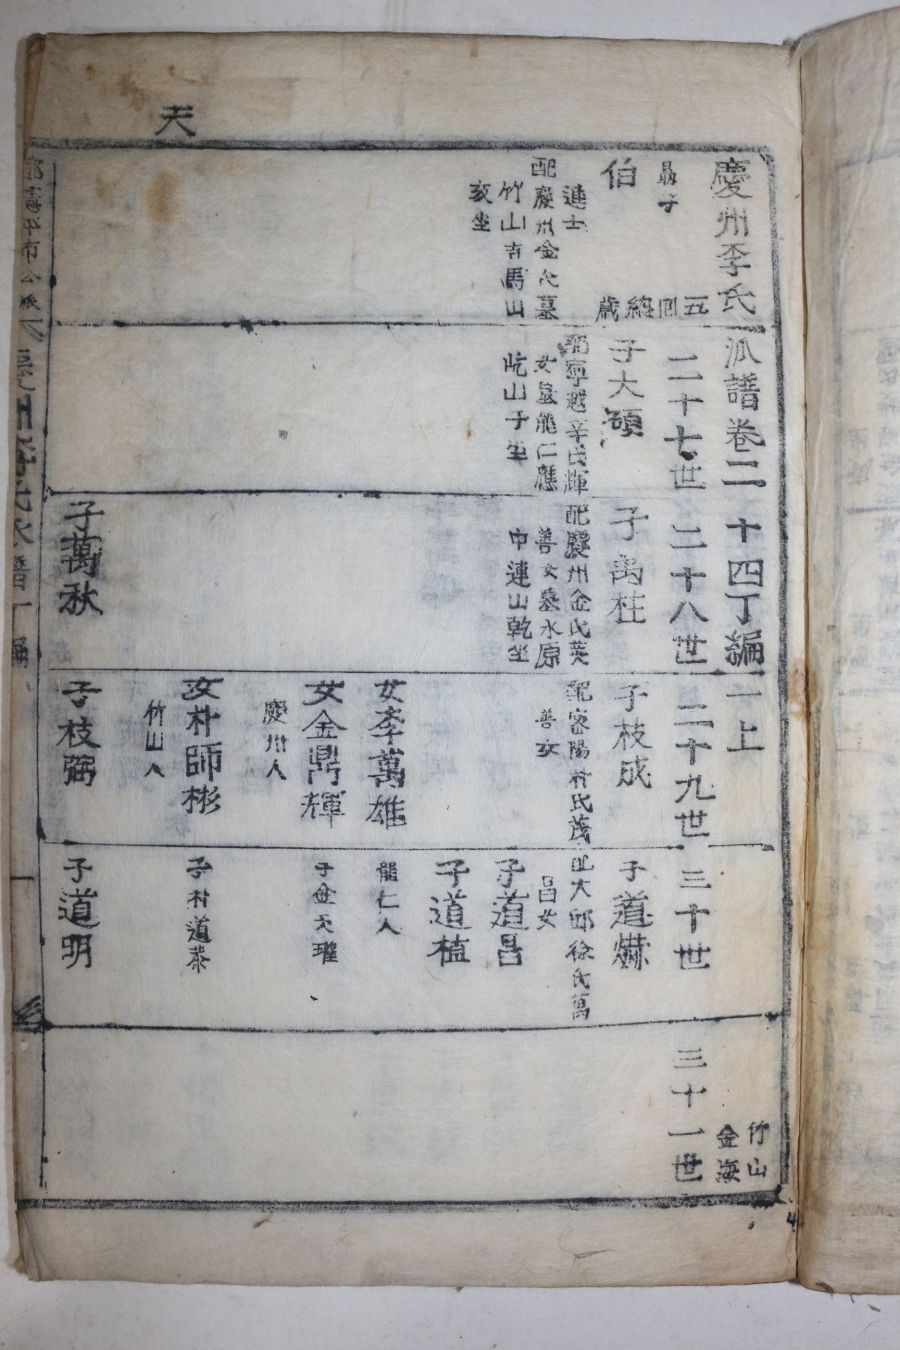 天
慶州李氏派譜卷二 十四丁編一上
竹山
金海
五
二十七世
二十八世
二十九世
三十世
三十一世
子
伯
總
歲
進士
配慶州金氏墓
竹山吉馬山
亥坐
子大碩
配寧越辛氏輝
女墓龍仁應
屹山子坐
子禹柱
配慶州金氏英
善女墓水原
中連山乾坐
子萬秋
子枝成
配密陽朴氏茂
善女
女李萬雄
女金鼎輝
慶州人
女朴師彬
竹山人
子枝弼
子道爀
配大邱徐氏萬
昌女
子道昌
子道植
龍仁人
子金天瓘
子朴道恭
子道明
慶州李氏派譜丁編
一